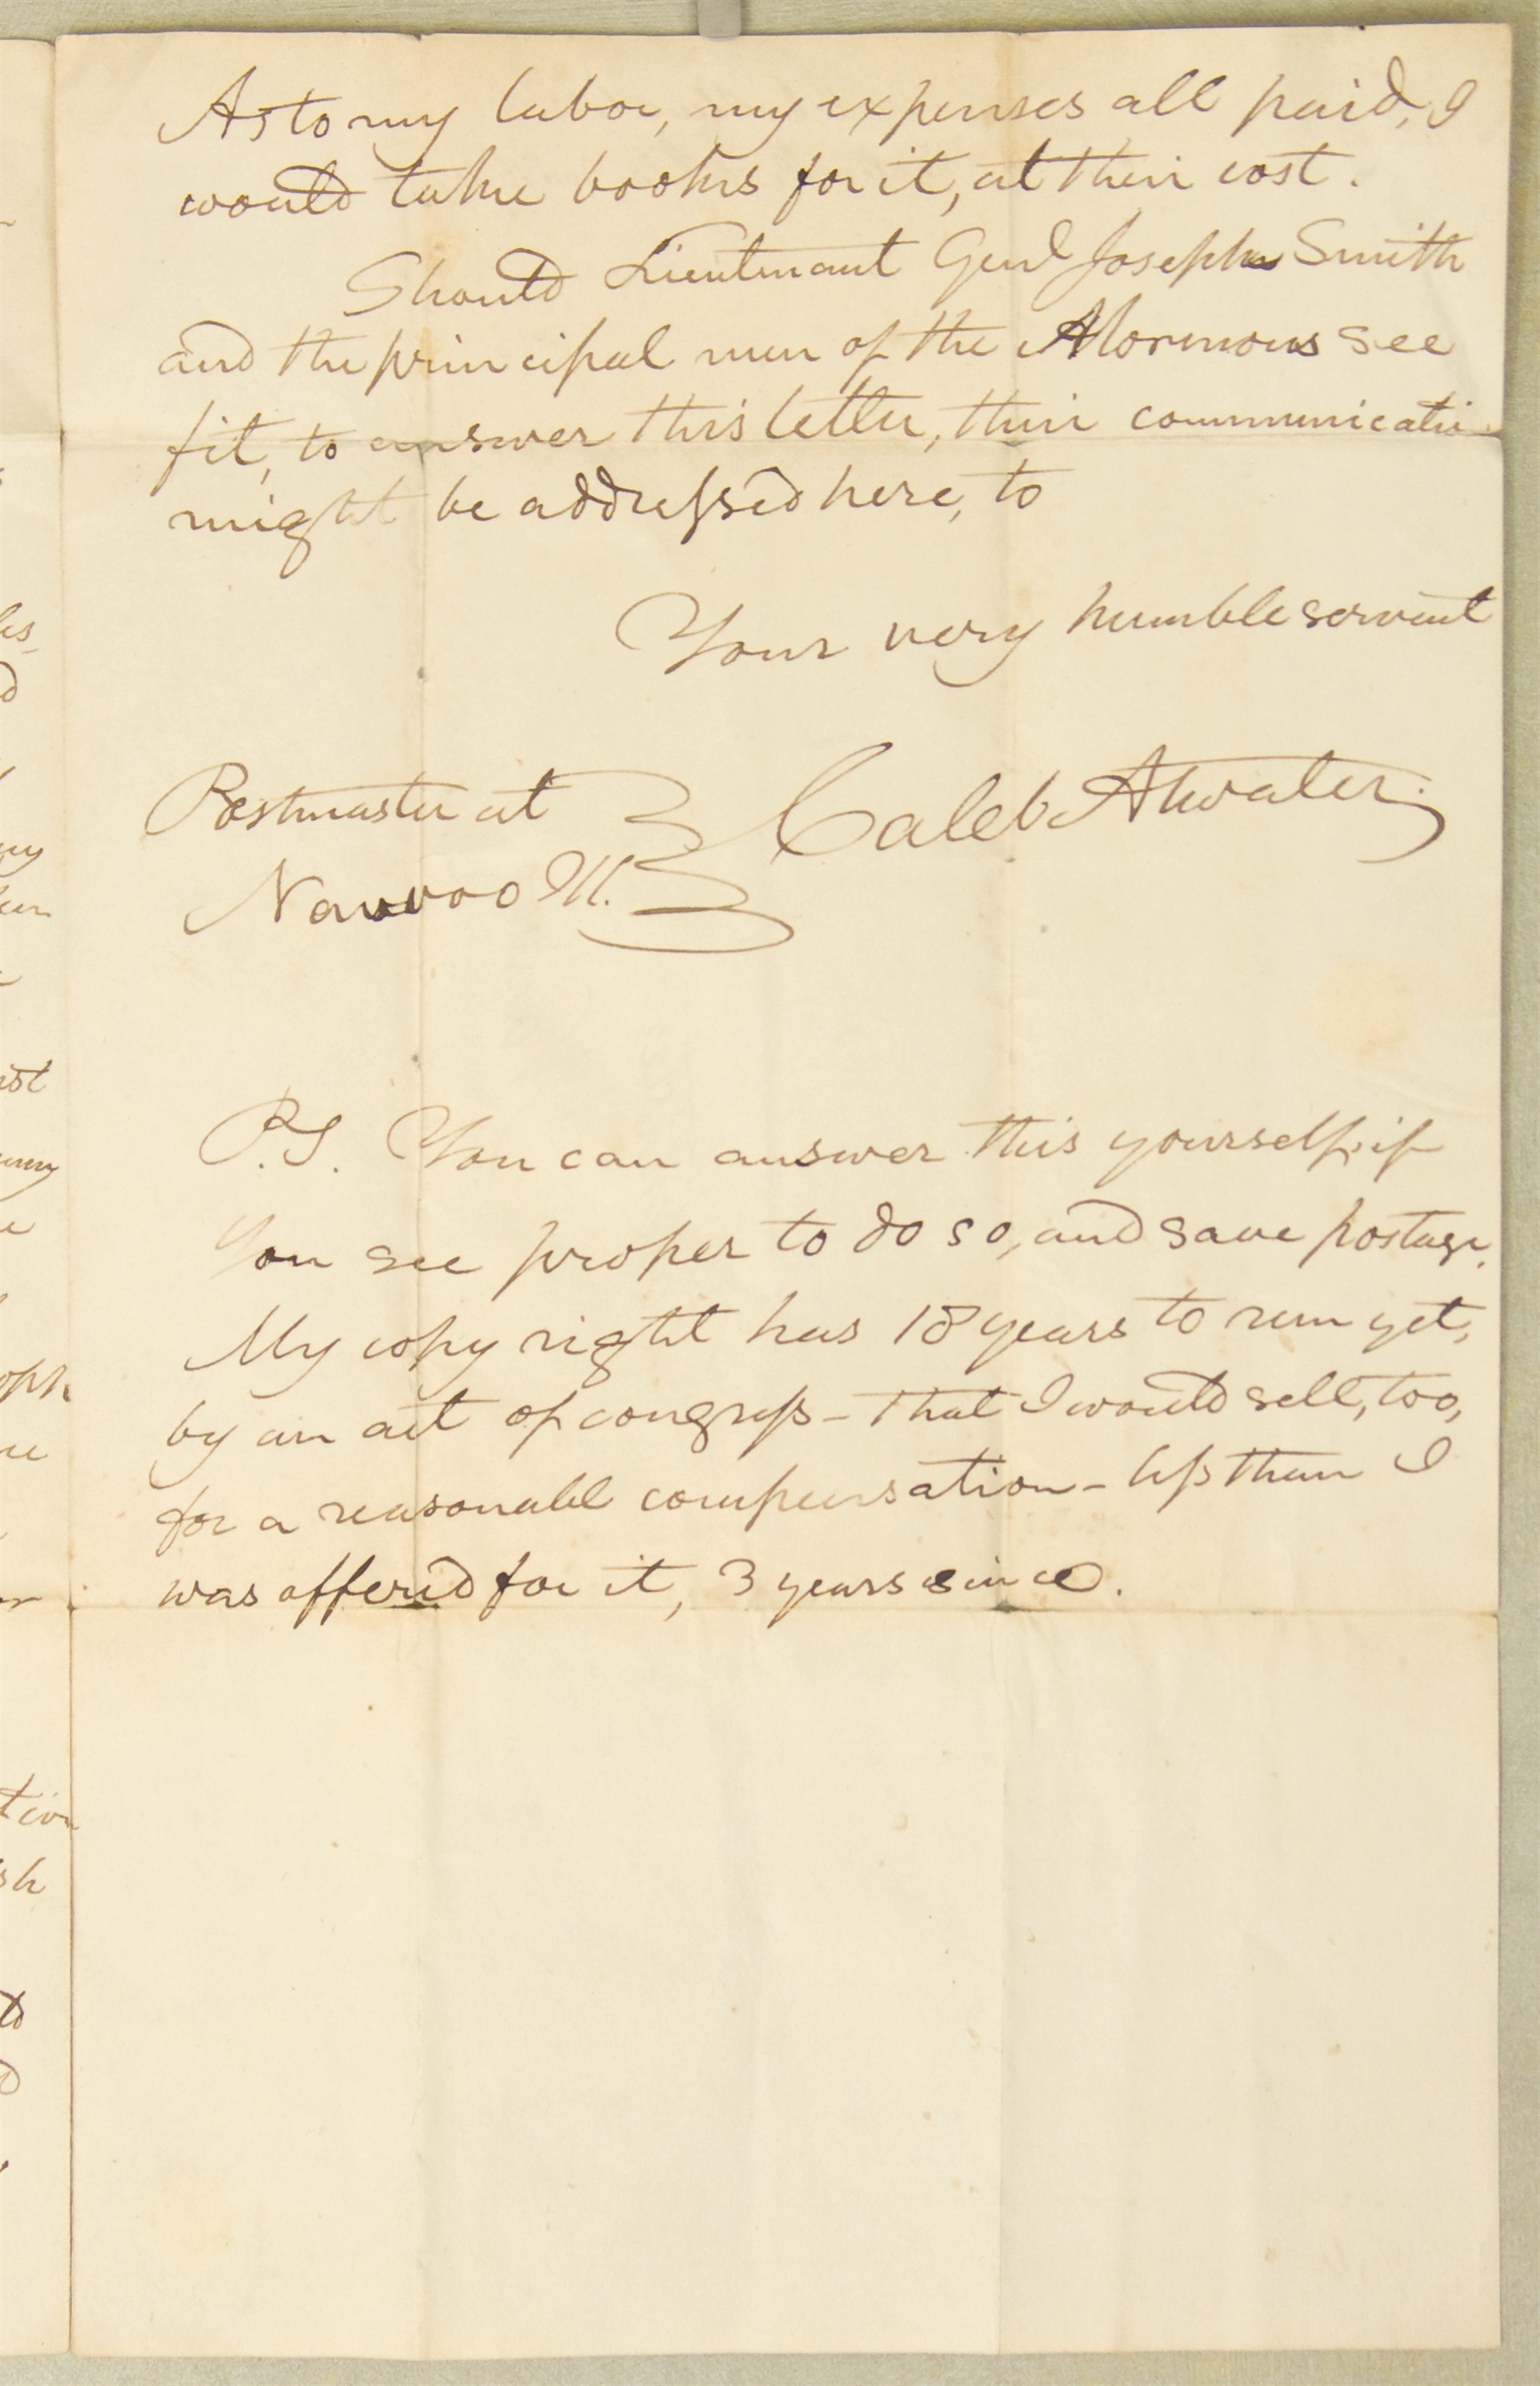 As to my labor, my expenses all paid, I
would take books for it, at their cost.
Should Lieutenant Genl Joseph Smith
and the principal men of the Mormons see
fit, to answer this letter, their communicatio
might be addressed here, to
Your very humble servant
Caleb Atwater.
Postmaster at
Nauvoo Ill.
P.S. You can answer this yourself, if
You see proper to do so, and save postage.
My copy right has 18 years to run yet,
by an act of congress - That I would sell, too,
for a reasonable compensation - less than I
was offered for it, 3 years since.